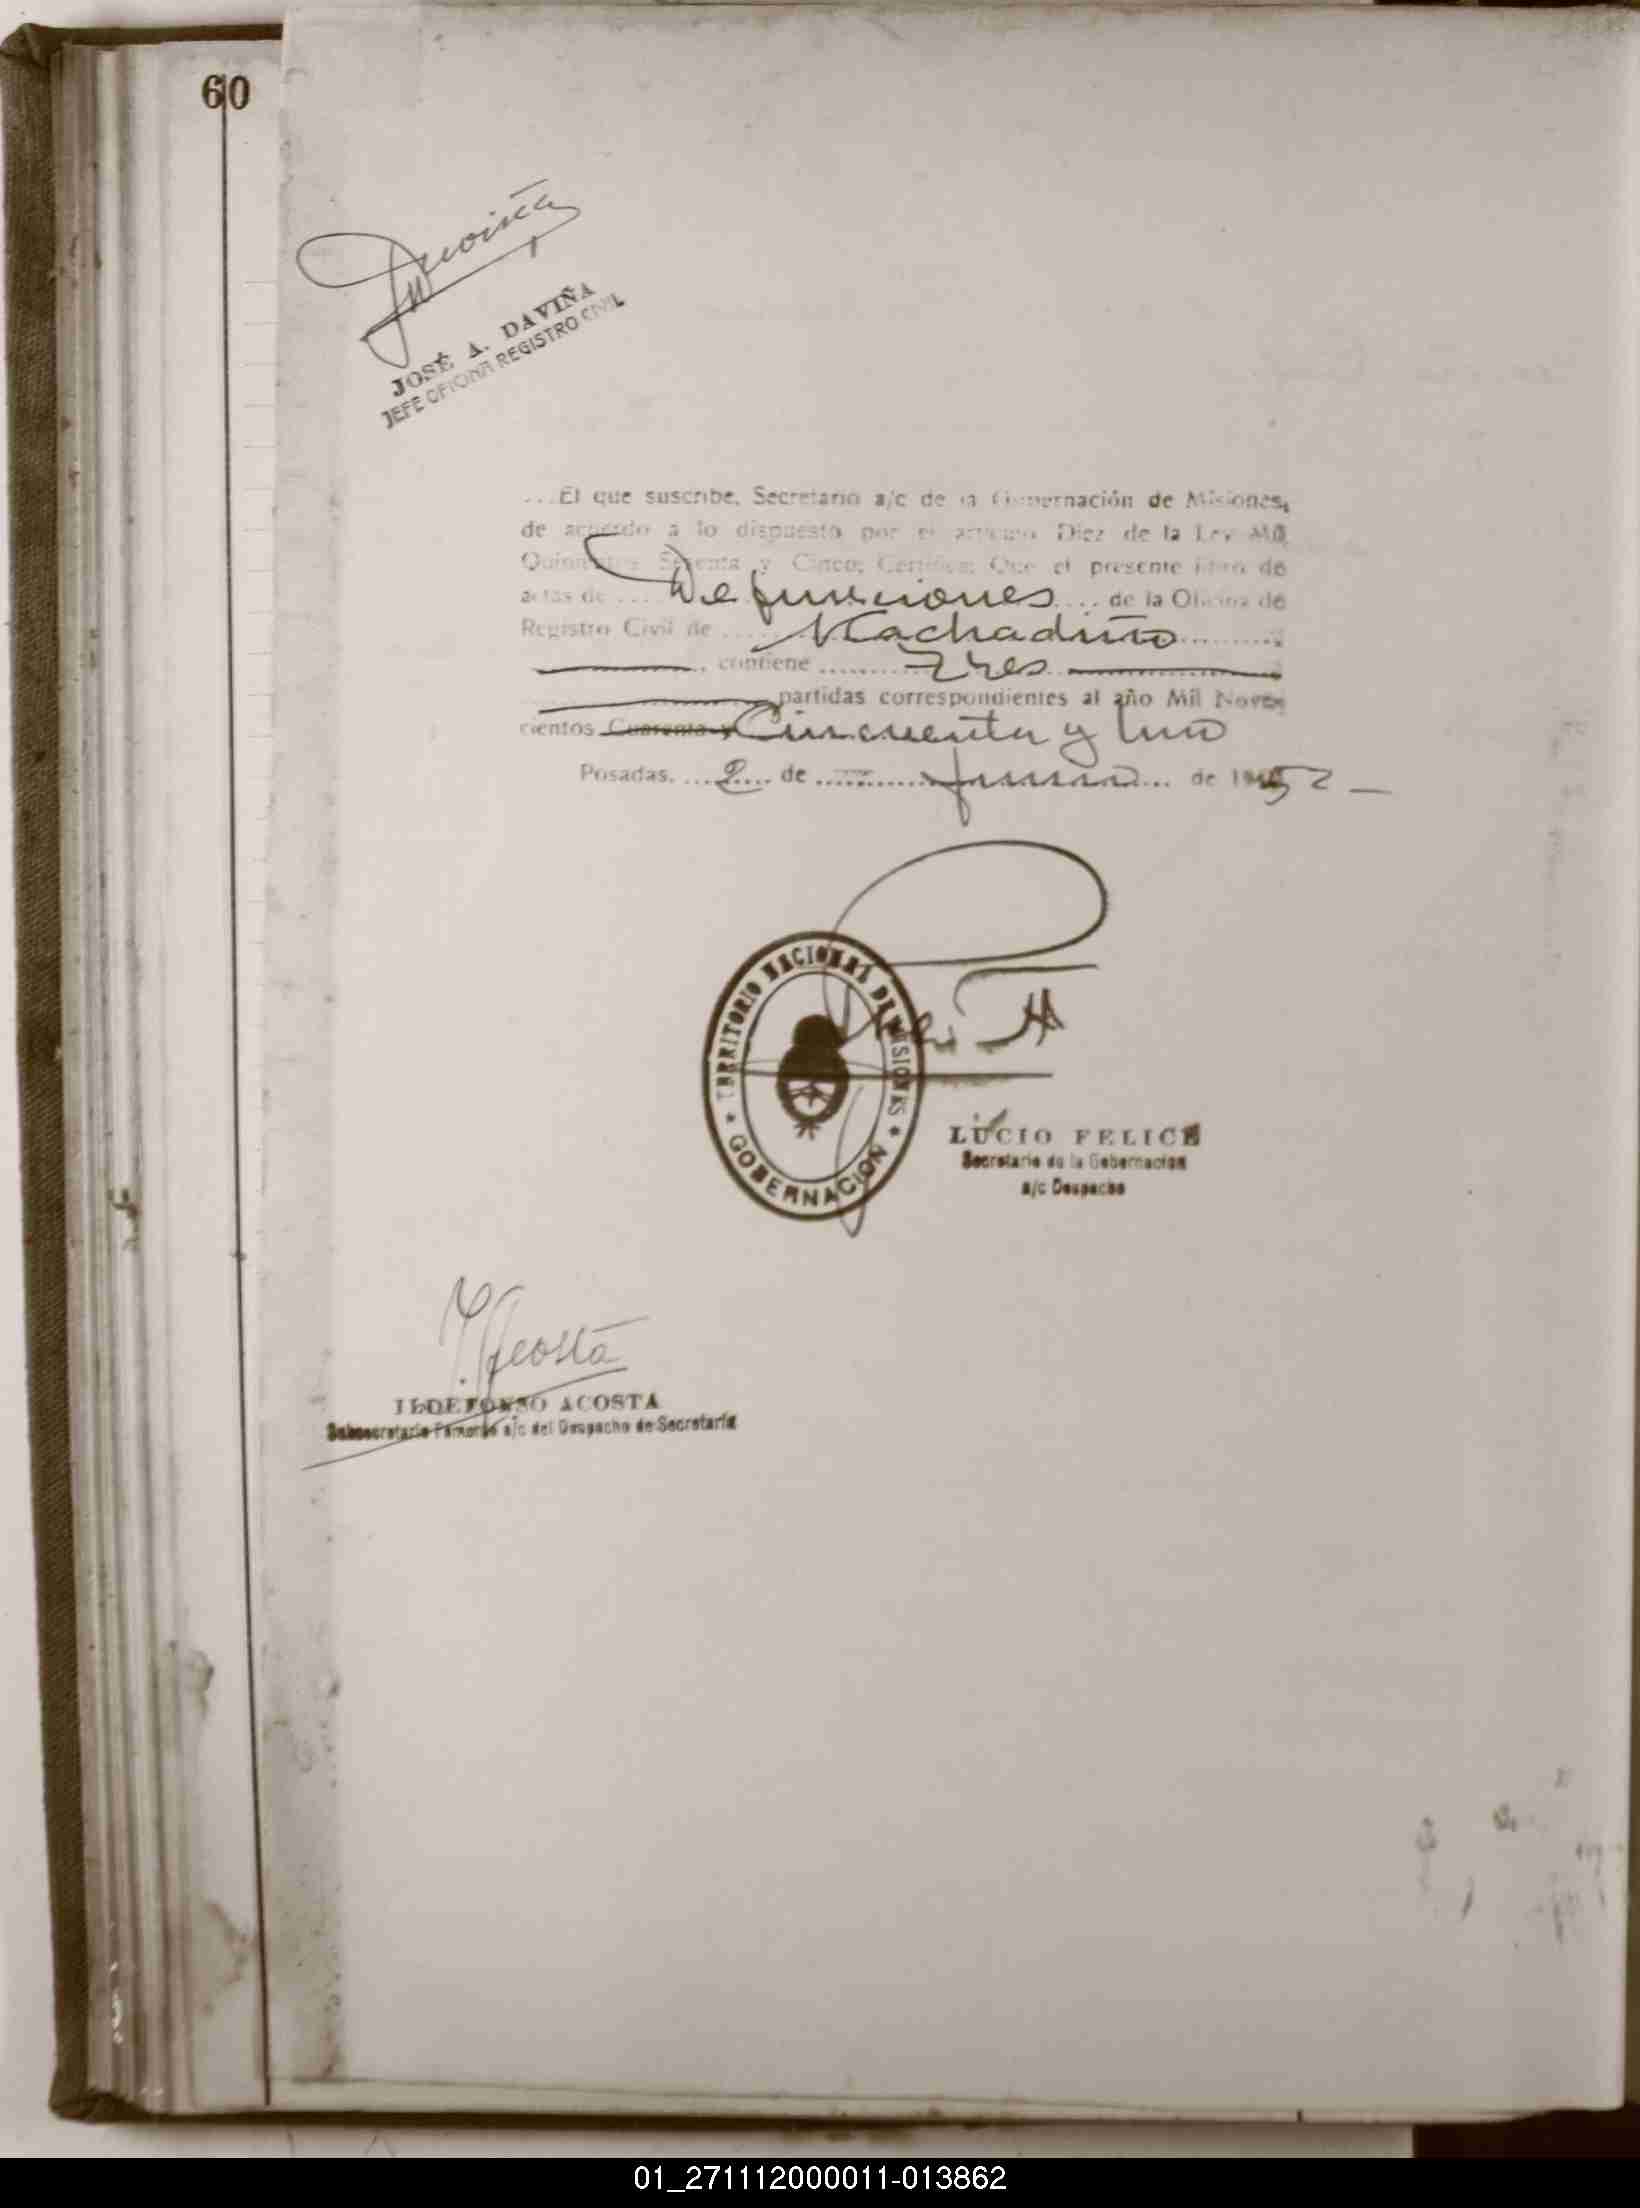 60
Daviña
JOSÉ A. DAVIÑA
JEFE OFICINA REGISTRO CIVIL
...El que suscribe, Secretario a/c de la Gobernación de Misiones,
de acuerdo a lo dispuesto por el artículo Diez de la Ley Mil
Quinientos Setenta y Cinco; Certifica: Que el presente libro de
actas de .... Defunciones .... de la Oficina de
Registro Civil de ...... Machadiño ..........
, contiene ......... Tres
partidas correspondientes al año Mil Nove-
cientos Cuarenta y Cincuenta y Uno
Posadas, ... 2 ... de ......... junio ... de 1952
TERRITORIO NACIONAL DE MISIONES
* GOBERNACION *
LUCIO FELICE
Secretario de la Gobernación
a/c Despacho
Acosta
ILDEFONSO ACOSTA
Subsecretario a/c del Despacho de Secretaría
01_271112000011-013862